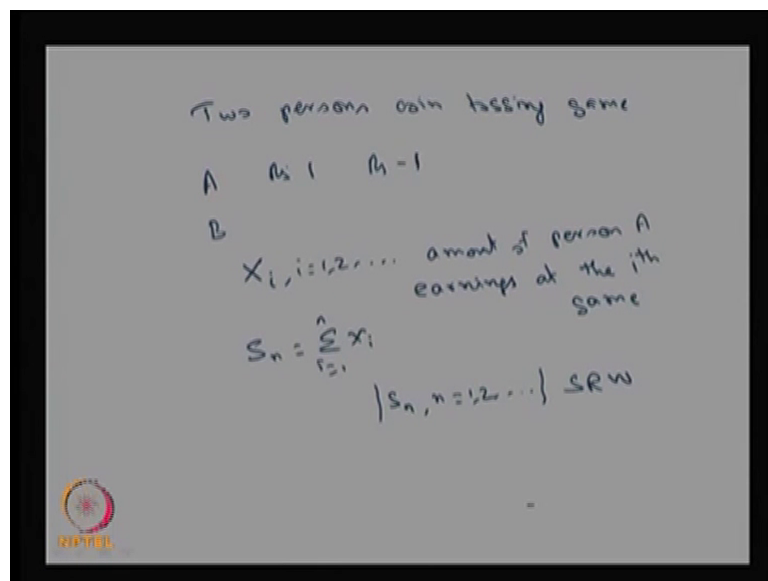 Two persons coin tossing game
A Rs 1 Rs -1
B
X_i, i=1,2,.... amount of person A
earnings at the ith
game
S_n = \sum_{i=1}^{n} X_i
{S_n, n=1,2,....} SRW
NPTEL